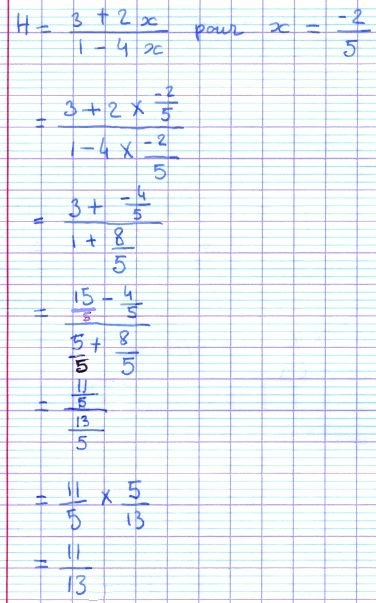 H = (3 + 2x)/(1 - 4x) pour x = -2/5
= (3 + 2 × -2/5)/(1 - 4 × -2/5)
= (3 + -4/5)/(1 + 8/5)
= (15/5 - 4/5)/(5/5 + 8/5)
= (11/5)/(13/5)
= 11/5 × 5/13
= 11/13